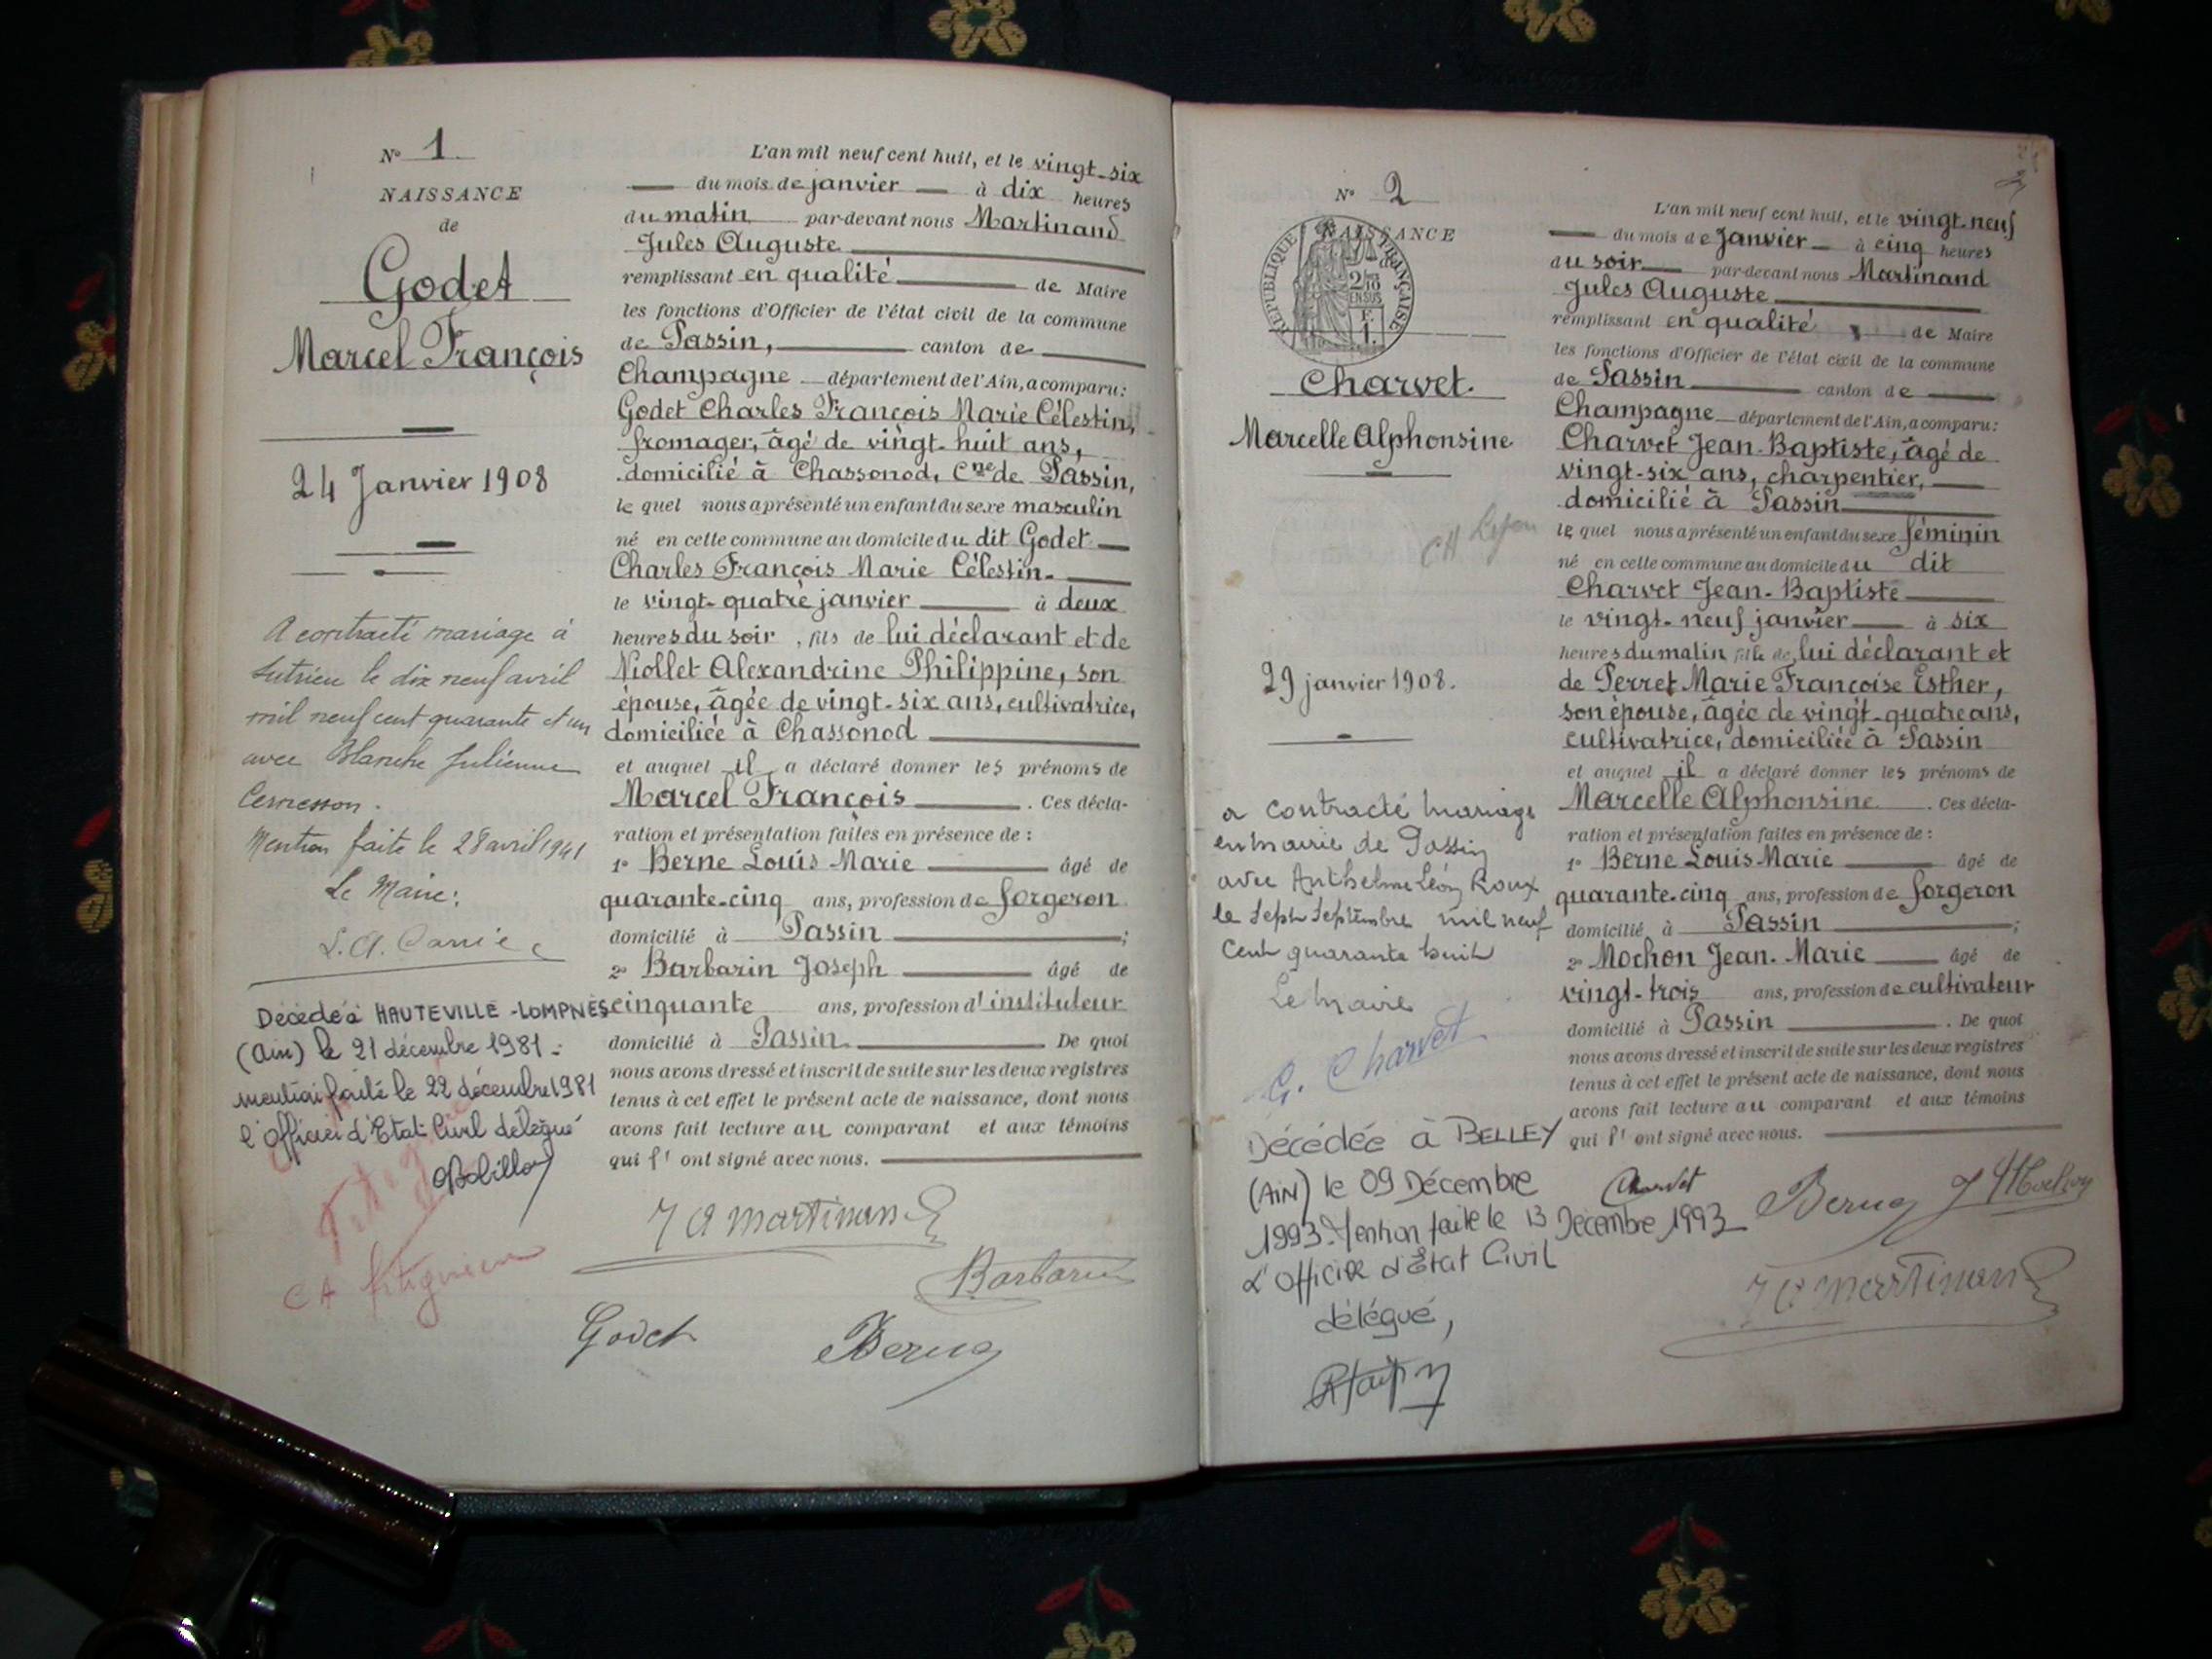 N° 1
NAISSANCE
de
Godet
Marcel François
24 Janvier 1908
A contracté mariage à
Sutrieu le dix neuf avril
mil neuf cent quarante et un
avec Blanche Julienne
Mention faite le 28 avril 1941
Le Maire:
Décédé à HAUTEVILLE-LOMPNES
(Ain) le 21 décembre 1981.
mention faite le 22 décembre 1981
l'Officier d'Etat Civil délégué
L'an mil neuf cent huit, et le vingt-six
du mois de janvier à dix heures
du matin par-devant nous Martinand
Jules Auguste
remplissant en qualité de Maire
les fonctions d'Officier de l'état civil de la commune
de Passin, canton de
Champagne département de l'Ain, a comparu:
Godet Charles François Marie Célestin,
fromager, âgé de vingt-huit ans,
domicilié à Chassonod, Cne de Passin,
le quel nous a présenté un enfant du sexe masculin
né en cette commune au domicile du dit Godet
Charles François Marie Célestin.
le vingt-quatre janvier à deux
heures du soir, fils de lui déclarant et de
Niollet Alexandrine Philippine, son
épouse, âgée de vingt-six ans, cultivatrice,
domiciliée à Chassonod
et auquel il a déclaré donner les prénoms de
Marcel François. Ces décla-
ration et présentation faites en présence de :
1° Berne Louis Marie âgé de
quarante-cinq ans, profession de forgeron
domicilié à Passin ;
2° Barbarin Joseph âgé de
cinquante ans, profession d'instituteur
domicilié à Passin. De quoi
nous avons dressé et inscrit de suite sur les deux registres
tenus à cet effet le présent acte de naissance, dont nous
avons fait lecture au comparant et aux témoins
qui l'ont signé avec nous.
J A Martinand
Barbarin
Godet Berne
N° 2
NAISSANCE
RÉPUBLIQUE FRANÇAISE
2/10
EN SUS
Charvet.
Marcelle Alphonsine
CH Lyon
29 janvier 1908.
a contracté mariage
en mairie de Passin
avec Anthelme Léon Roux
le sept septembre mil neuf
cent quarante huit
Le Maire
G. Charvet
Décédée à BELLEY
(AIN) le 09 Décembre
1993. Mention faite le 13 Décembre 1993
L'Officier d'État Civil
délégué,
L'an mil neuf cent huit, et le vingt-neuf
du mois de Janvier à cinq heures
du soir par-devant nous Martinand
Jules Auguste
remplissant en qualité de Maire
les fonctions d'Officier de l'état civil de la commune
de Passin canton de
Champagne département de l'Ain, a comparu:
Charvet Jean-Baptiste, âgé de
vingt-six ans, charpentier,
domicilié à Passin
le quel nous a présenté un enfant du sexe féminin
né en cette commune au domicile du dit
Charvet Jean-Baptiste
le vingt-neuf janvier à six
heures du matin fille de lui déclarant et
de Perret Marie Françoise Esther,
son épouse, âgée de vingt-quatre ans,
cultivatrice, domiciliée à Passin
et auquel il a déclaré donner les prénoms de
Marcelle Alphonsine. Ces décla-
ration et présentation faites en présence de :
1° Berne Louis Marie âgé de
quarante-cinq ans, profession de forgeron
domicilié à Passin ;
2° Mochon Jean-Marie âgé de
vingt-trois ans, profession de cultivateur
domicilié à Passin. De quoi
nous avons dressé et inscrit de suite sur les deux registres
tenus à cet effet le présent acte de naissance, dont nous
avons fait lecture au comparant et aux témoins
qui l'ont signé avec nous.
Charvet Berne J M Mochon
J A Martinand